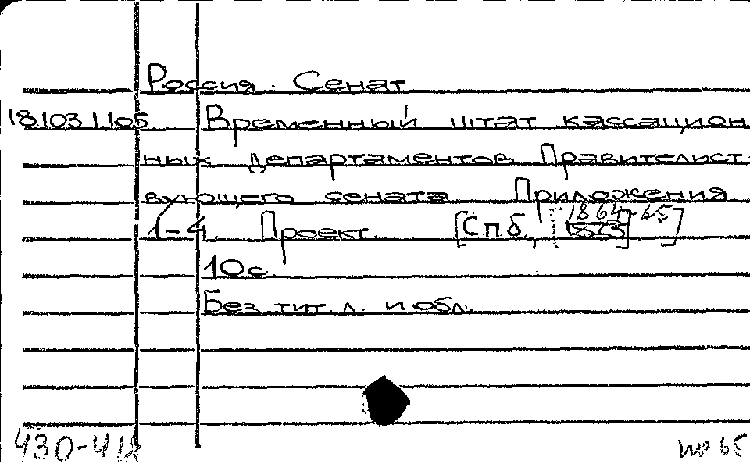 Россия. Сенат
18.103.1.105 Временный штат кассацион
ных департаментов Правителист
вующего сената Приложения
1-4 Проект. [Спб, 1864-65]
10с.
Без тит. л. и обл.
430-418
65